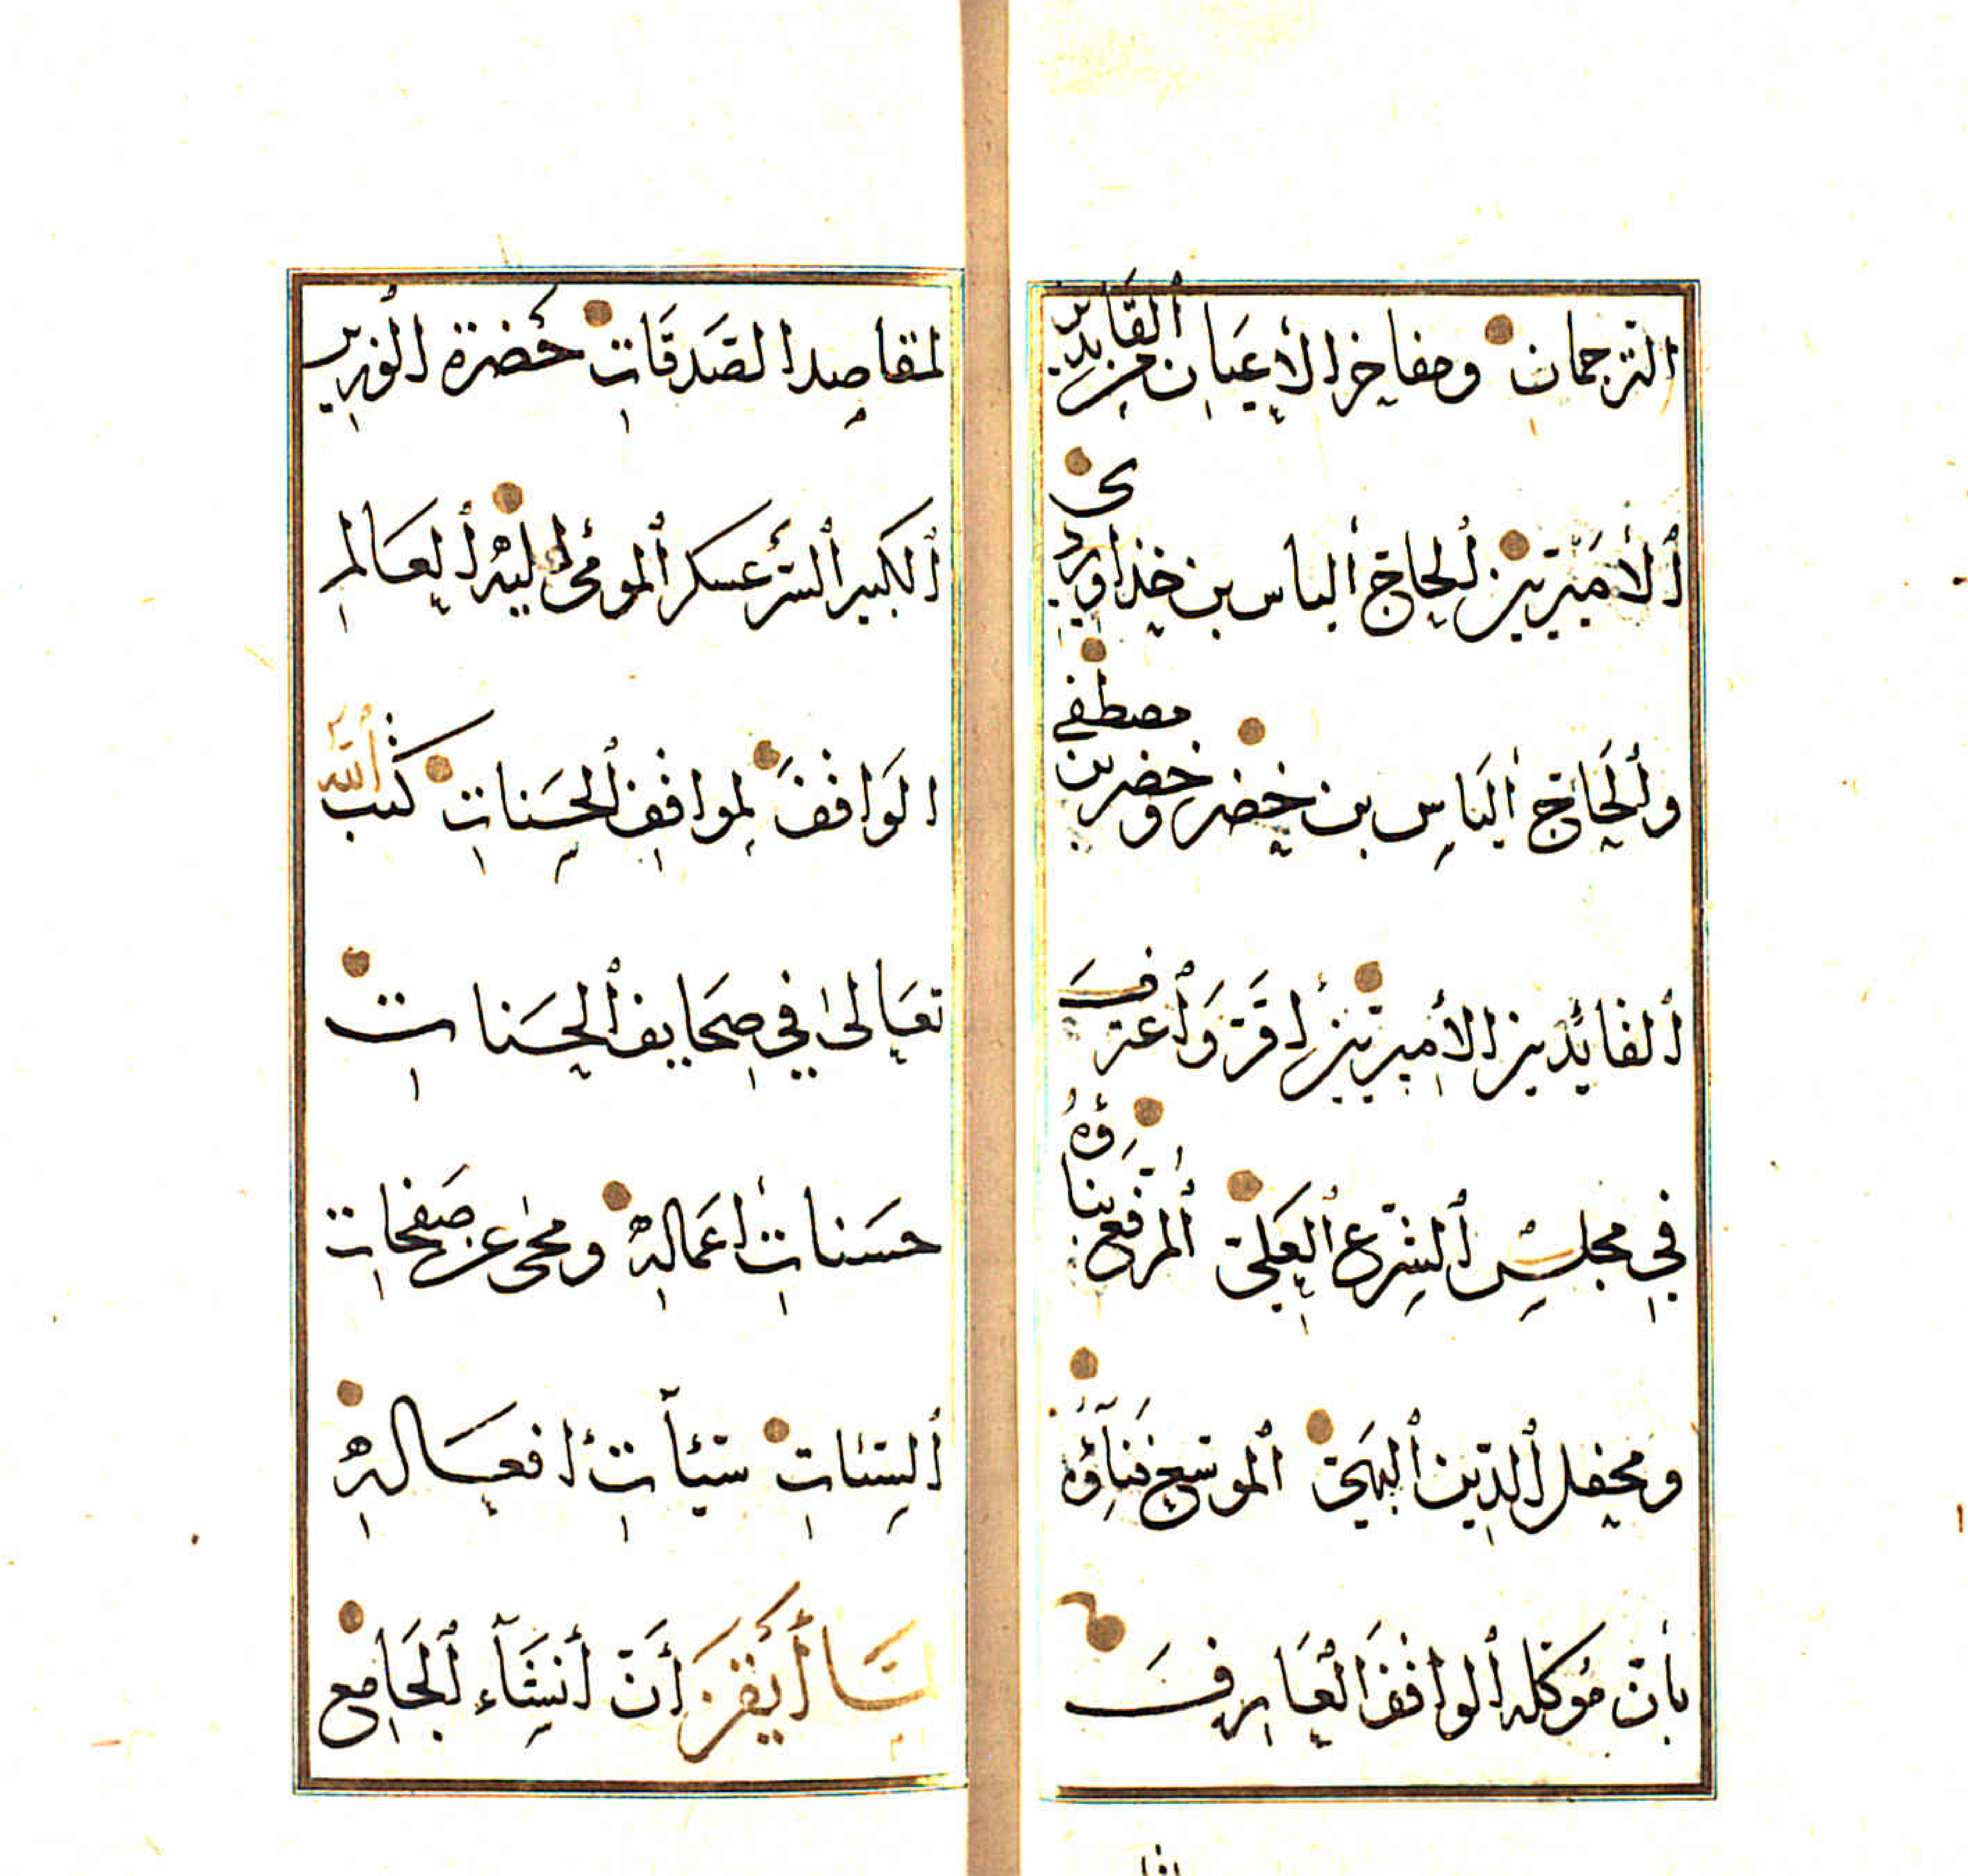 الترجمان ومفاخر الأعيان القائدين
الأميرين الحاج الياس بن خذاويردي
والحاج الياس بن خضر وخضر بن مصطفى
القائدين الأميرين أقر واعترف
في مجلس الشرع العلي المرتفع بناؤه
ومحفل الدين البهي الموسع فناؤه
بأن مؤكله الواقف العارف
لمقاصد الصدقات حضرة الوزير
الكبير السرعسكر المومى إليه العالم
الواقف لمواقف الحسنات كتب الله
تعالى في صحايف الحسنات
حسنات أعماله ومحى عن صفحات
السيئات سيئات افعاله
لما أيقن أن أنشاء الجامع